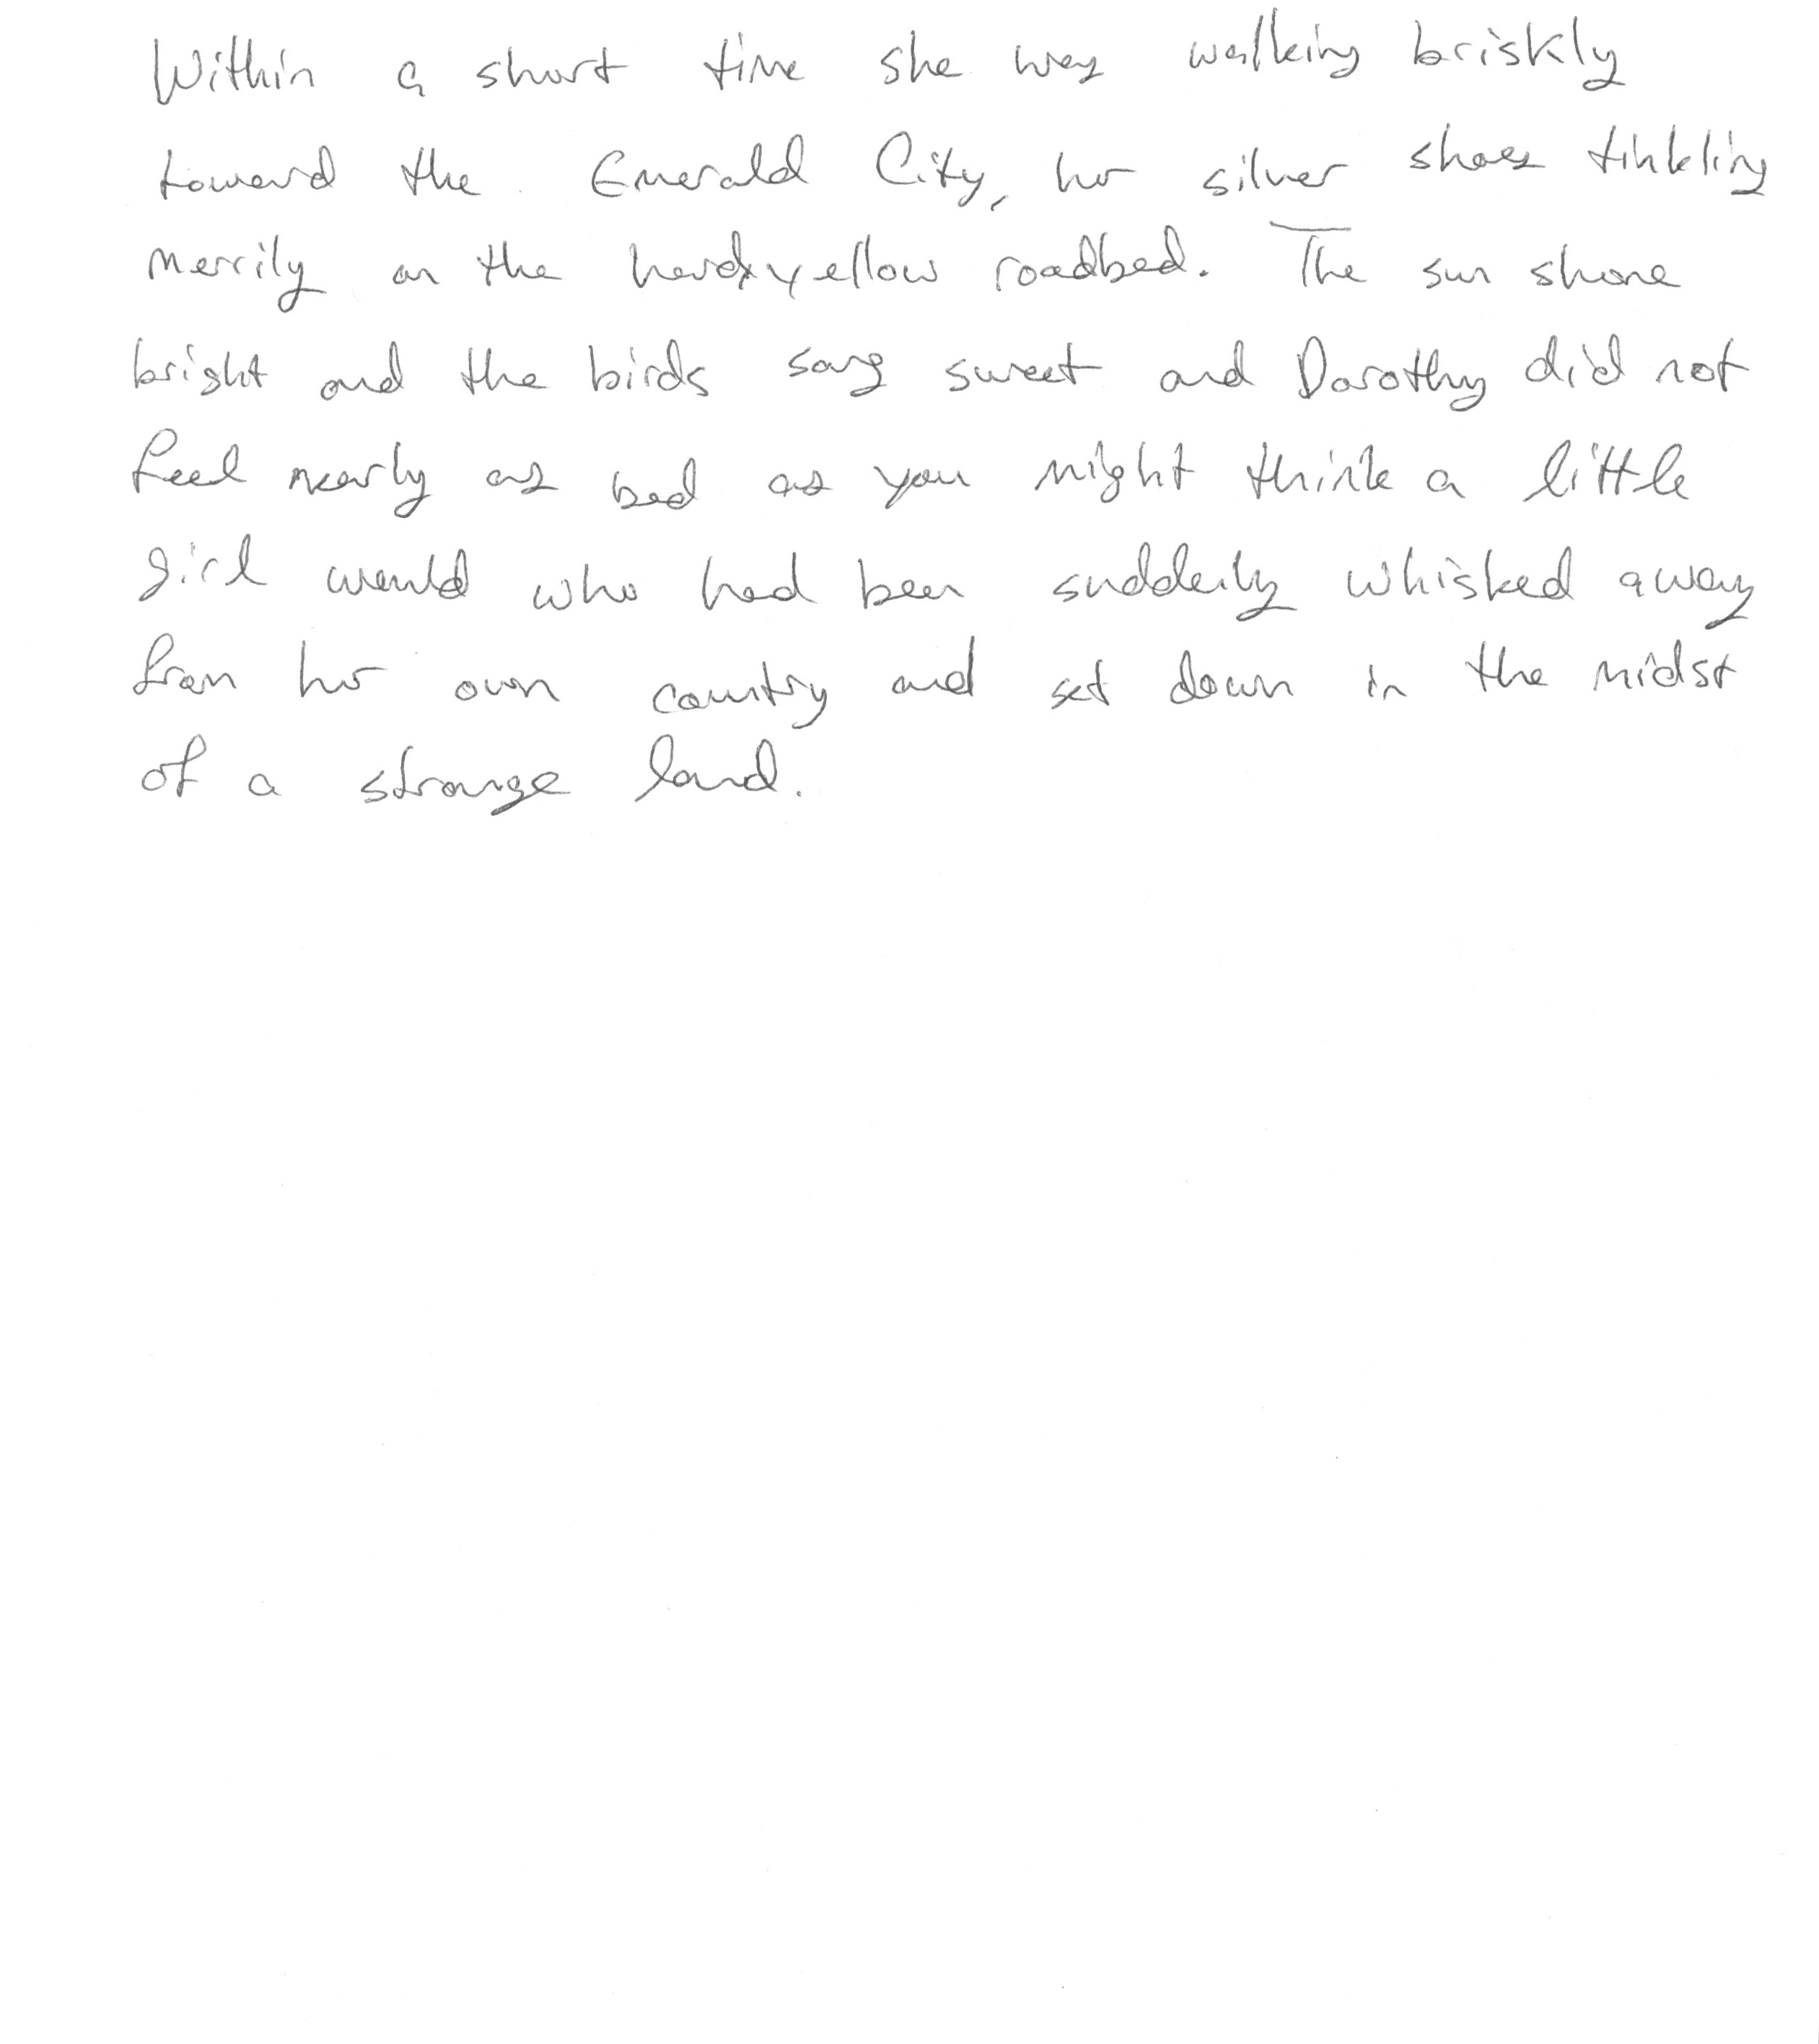 Within a short time she was walking briskly
toward the Emerald City, her silver shoes tinkling
merrily on the hard yellow roadbed. The sun shone
bright and the birds sang sweet and Dorothy did not
feel nearly as bad as you might think a little
girl would who had been suddenly whisked away
from her own country and set down in the midst
of a strange land.